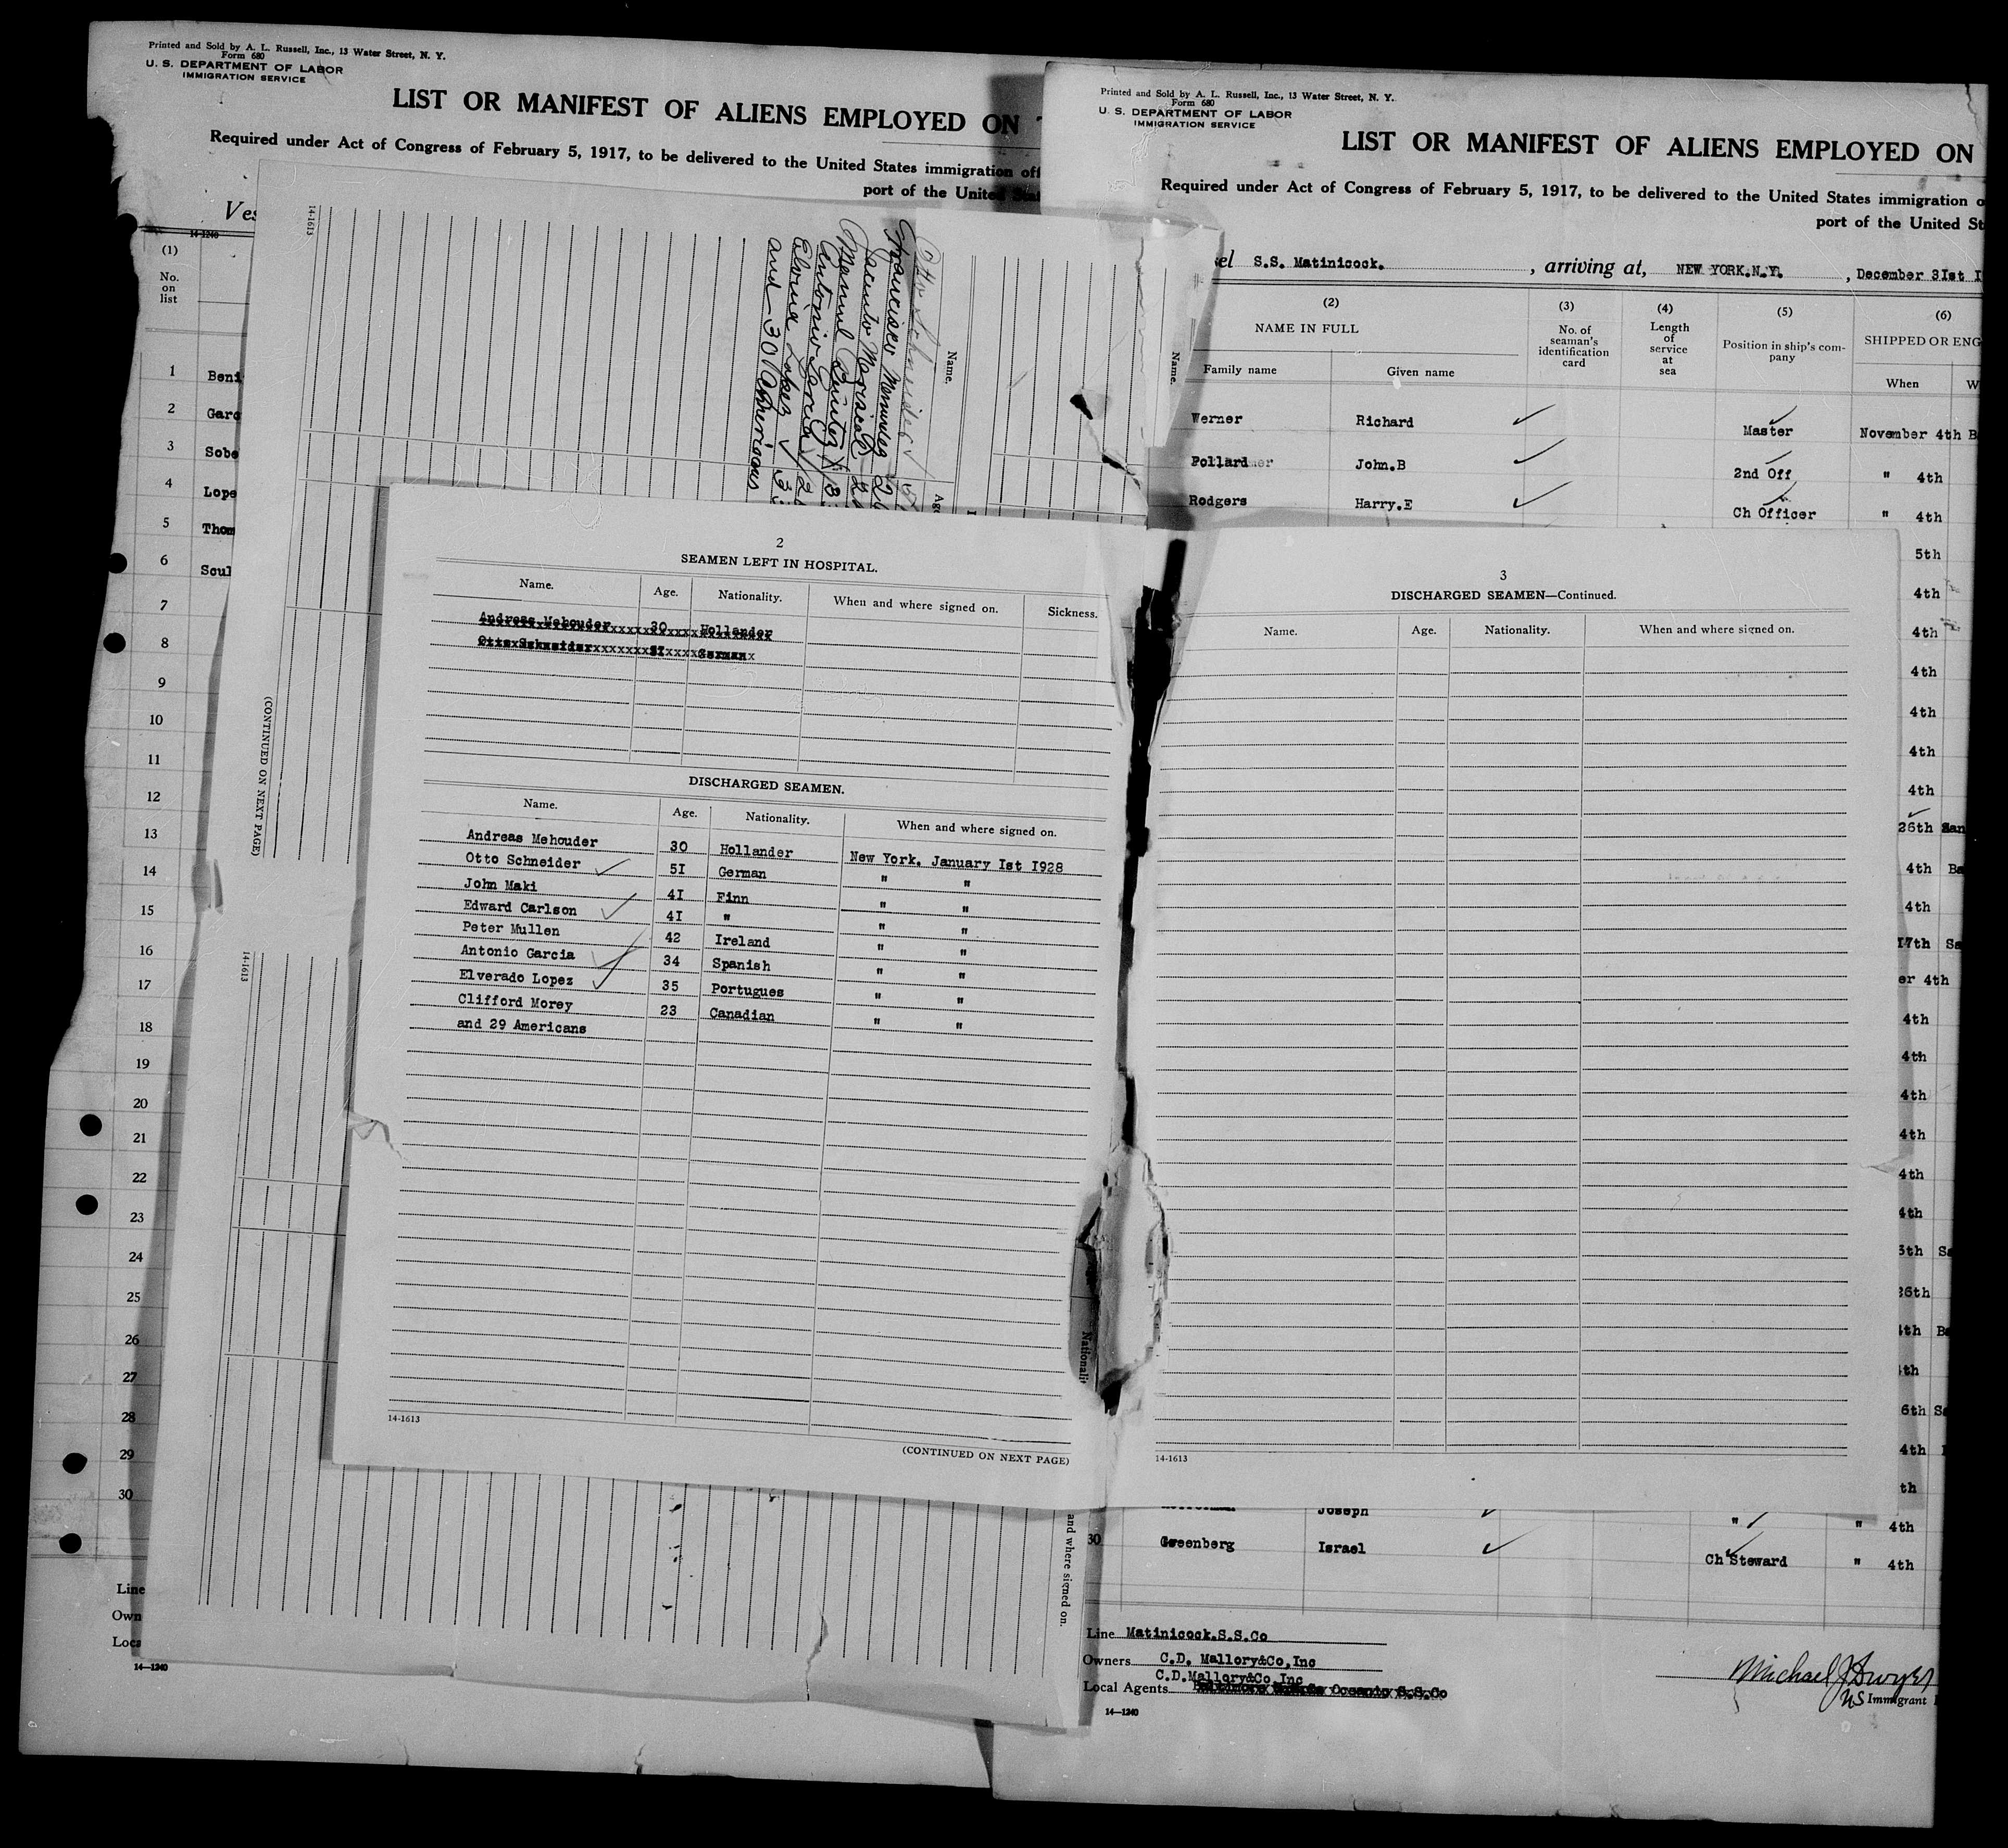 Printed and Sold by A. L. Russell, Inc., 13 Water Street, N. Y.
Form 680
U. S. DEPARTMENT OF LABOR
IMMIGRATION SERVICE
LIST OR MANIFEST OF ALIENS EMPLOYED ON
Required under Act of Congress of February 5, 1917, to be delivered to the United States immigration
port of the United
14-1240
(1)
No. on list
1 Beni
2 Garc
3 Sobe
4 Lope
5 Thom
6 Scul
7
8
9
10
11
12
13
14
15
16
17
18
19
20
21
22
23
24
25
26
27
28
29
30
Line
Own
Loca
14—1240
14-1613
Name.
Otto Schneider
Francisco
Jacento
Manuel
Antonio Garcia
Lopez
and 30 Americans
(CONTINUED ON NEXT PAGE)
14-1613
Name.
and where signed on.
2
SEAMEN LEFT IN HOSPITAL.
Name. Age. Nationality. When and where signed on. Sickness.
Andreas Mehouder 30 Hollander
Otto Schneider 51 German
DISCHARGED SEAMEN.
Name. Age. Nationality. When and where signed on.
Andreas Mehouder 30 Hollander New York. January Ist I928
Otto Schneider 5I German " "
John Maki 4I Finn " "
Edward Carlson 4I " " "
Peter Mullen 42 Ireland " "
Antonio Garcia 34 Spanish " "
Elverado Lopez 35 Portugues " "
Clifford Morey 23 Canadian " "
and 29 Americans
14-1613
(CONTINUED ON NEXT PAGE)
3
DISCHARGED SEAMEN—Continued.
Name. Age. Nationality. When and where signed on.
14-1613
Printed and Sold by A. L. Russell, Inc., 13 Water Street, N. Y.
Form 680
U. S. DEPARTMENT OF LABOR
IMMIGRATION SERVICE
LIST OR MANIFEST OF ALIENS EMPLOYED ON
Required under Act of Congress of February 5, 1917, to be delivered to the United States immigration
port of the United St
S.S. Matinicock. , arriving at, NEW YORK.N.Y. , December 3Ist I
(2) (3) (4) (5) (6)
NAME IN FULL No. of seaman's identification card Length of service at sea Position in ship's company SHIPPED OR ENG
Family name Given name When W
Werner Richard Master November 4th B
Pollard John.B 2nd Off " 4th
Rodgers Harry.E Ch Officer " 4th
5th
4th
4th
4th
4th
4th
4th
26th San
4th Ba
4th
17th Sa
er 4th
4th
4th
4th
4th
4th
4th
5th Sa
26th
4th B
4th
6th Sa
4th
th
Joseph " " 4th
30 Greenberg Israel Ch Steward " 4th
Line Matinicock.S.S.Co
Owners C.D. Mallory&Co,Inc
C.D.Mallory&Co,Inc
Local Agents Baltimore Oceanic S.S.Co
14—1240
Michael J Dwyer
US Immigrant